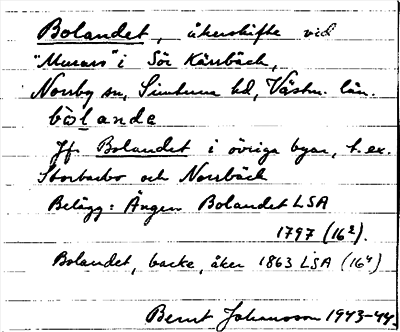 Bolandet, åkerskifte vid
"Murars" i Sör Kärrbäck,
Norrby sn, Simtuna hd, Västm. län.
bòlande
Jf. Bolandet i övriga byar, t.ex.
Storbarbo och Norrbäck
Belägg: Ängen Bolandet LSA
1797 (16²).
Bolandet, backe, åker 1863 LSA (16⁴)
Bernt Johansson 1943-44.